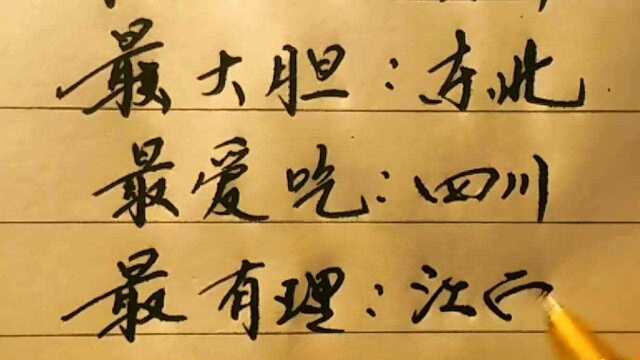 最大胆：东北
最爱吃：四川
最有理：江西